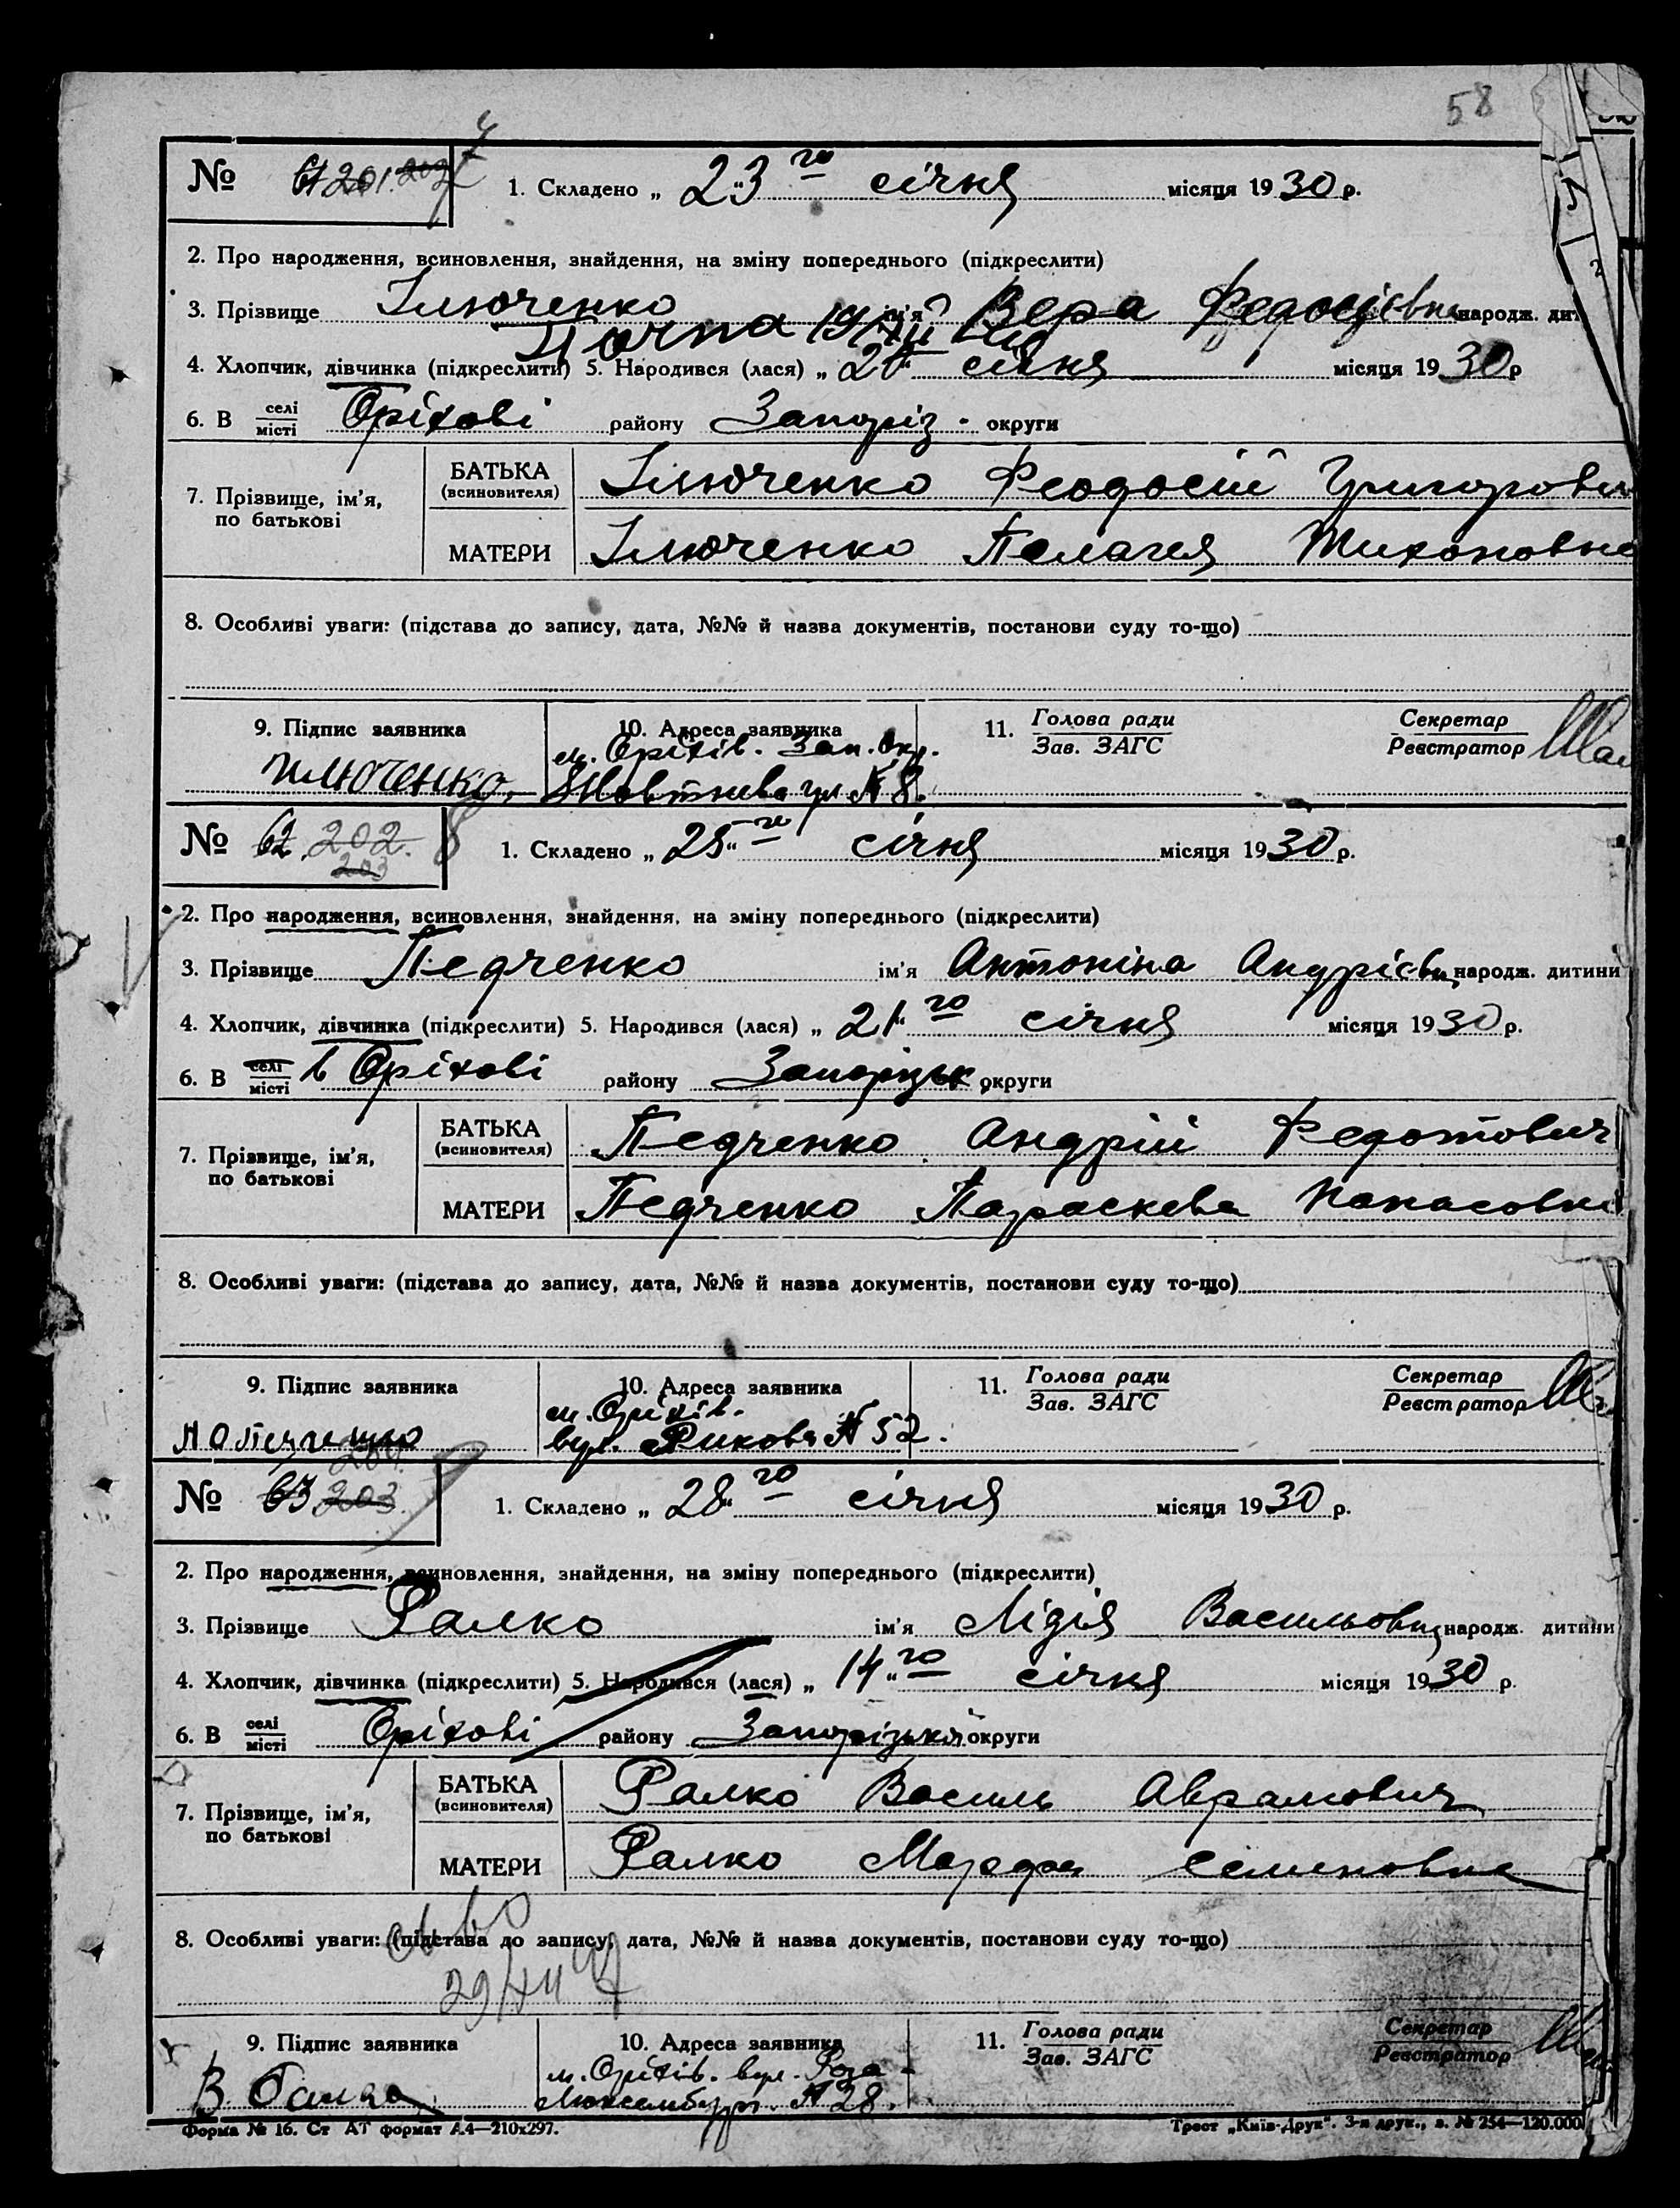 58
№ 61 201. 203 7
1. Складено „ 23 го " січня місяця 1930 р.
2. Про народження, всиновлення, знайдення, на зміну попереднього (підкреслити)
3. Прізвище Ілюченко ім'я Вера Федосіевна народж.
4. Хлопчик, дівчинка (підкреслити) 5. Народився (лася) „ січня місяця 1930 р
6. В селі місті Оріхові району Запоріз. округи
7. Прізвище, ім'я, по батькові
БАТЬКА (всиновителя) Ілюченко Феодосій Григорович
МАТЕРИ Ілюченко Пелагея Тихоновна
8. Особливі уваги: (підстава до запису, дата, №№ й назва документів, постанови суду то-що)
9. Підпис заявника 10. Адреса заявника 11. Голова ради Зав. ЗАГС Секретар Реєстратор
м. Оріхів. Зап. Окр.
Илюченко Жовтнева ул № 8.
№ 62. 202. 203 8
1. Складено „ 25 го " січня місяця 1930 р.
2. Про народження, всиновлення, знайдення, на зміну попереднього (підкреслити)
3. Прізвище Педченко ім'я Антоніна Андрієвн народж. дитини
4. Хлопчик, дівчинка (підкреслити) 5. Народився (лася) „ 21 го " січня місяця 1930 р.
6. В селі місті в Оріхові району Запорізьк округи
7. Прізвище, ім'я, по батькові
БАТЬКА (всиновителя) Педченко Андрій Федотович
МАТЕРИ Педченко Параскева Панасовна
8. Особливі уваги: (підстава до запису, дата, №№ й назва документів, постанови суду то-що)
9. Підпис заявника 10. Адреса заявника 11. Голова ради Зав. ЗАГС Секретар Реєстратор
м. Оріхів.
вул. Рикова № 52.
№ 63 203. 204. 9
1. Складено „ 28 го " січня місяця 1930 р.
2. Про народження, всиновлення, знайдення, на зміну попереднього (підкреслити)
3. Прізвище Ралко ім'я Лідія Васильовн народж. дитини
4. Хлопчик, дівчинка (підкреслити) 5. Народився (лася) „ 14 го " січня місяця 1930 р.
6. В селі місті Оріхові району Запорізької округи
7. Прізвище, ім'я, по батькові
БАТЬКА (всиновителя) Ралко Василь Аврамович
МАТЕРИ Ралко Марфа Семеновна
8. Особливі уваги: (підстава до запису, дата, №№ й назва документів, постанови суду то-що)
9. Підпис заявника 10. Адреса заявника 11. Голова ради Зав. ЗАГС Секретар Реєстратор
м. Оріхів. вул. Роза
Люксембург № 28.
Форма № 16. Ст АТ формат А.4—210х297.
Трест „Київ-Друк". 3-я друк., з. № 254—120.000